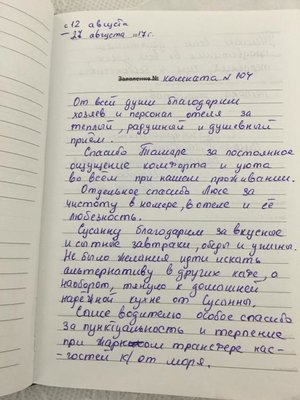 с 12 августа
– 27 августа 17 г.
Заявление № комната № 104
От всей души благодарим
хозяев и персонал отеля за
тёплый, радушный и душевный
приём.
Спасибо Тамаре за постоянное
ощущение комфорта и уюта
во всём при нашем проживании.
Отдельное спасибо Люсе за
чистоту в номере, в отеле и её
любезность.
Сусанну благодарим за вкусные
и сытные завтраки, обеды и ужины.
Не было желания идти искать
альтернативу в других кафе, а
наоборот, тянуло к домашней
кухне от Сусанны.
водителю особое спасибо
за пунктуальность и терпение
при жарком трансфере нас –
– гостей к/от моря.